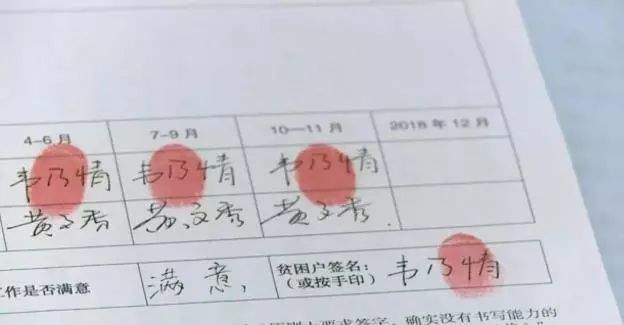 4-6月 7-9月 10-11月 2018年12月
韦乃情 韦乃情 韦乃情
黄文秀 黄文秀 黄文秀
作是否满意 满意, 贫困户签名：
（或按手印） 韦乃情
原则上要求签字，确实没有书写能力的